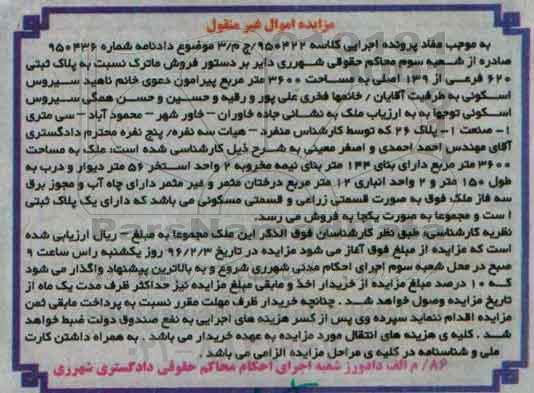 مزایده اموال غیر منقول
به موجب مفاد پرونده اجرایی کلاسه ۹۵۰۴۲۲/ج م/۳ موضوع دادنامه شماره ۹۵۰۴۳۶
صادره از شعبه سوم محاکم حقوقی شهرری دایر بر دستور فروش ماترک نسبت به پلاک ثبتی
۶۲۰ فرعی از ۱۳۹ اصلی به مساحت ۳۶۰۰ متر مربع پیرامون دعوی خانم ناهید سیروس
اسکونی به طرفیت آقایان / خانمها فخری علی پور و رقیه و حسین و حسن همگی سیروس
اسکونی توجهاً به به ارزیاب ملک به نشانی جاده خاوران - خاور شهر - محمود آباد - سی متری
۱- صنعت ۱- پلاک ۲۶ که توسط کارشناس منفرد - هیات سه نفره/ پنج نفره محترم دادگستری
آقای مهندس احمد احمدی و اصغر معینی به شرح ذیل کارشناسی شده است: ملک به مساحت
۳۶۰۰ متر مربع دارای بنای ۱۴۴ متر بنای نیمه مخروبه ۲ واحد استخر ۵۶ متر دیوار و درب به
طول ۱۵۰ متر و ۲ واحد انباری ۱۲ متر مربع درختان مثمر و غیر مثمر دارای چاه آب و مجوز برق
سه فاز ملک فوق به صورت قسمتی زراعی و قسمتی مسکونی می باشد که دارای یک پلاک ثبتی
ا ست و مجموعا به صورت یکجا به فروش می رسد.
نظریه کارشناسی: طبق نظر کارشناسان فوق الذکر این ملک مجموعا به مبلغ - ریال ارزیابی شده
است که مزایده از مبلغ فوق آغاز می شود مزایده در تاریخ ۹۶/۲/۳ روز یکشنبه راس ساعت ۹
صبح در محل شعبه سوم اجرای احکام مدنی شهرری شروع و به بالاترین پیشنهاد واگذار می شود
که ۱۰ درصد مبلغ مزایده از خریدار اخذ و مابقی مبلغ مزایده نیز حداکثر ظرف مدت یک ماه از
تاریخ مزایده وصول خواهد شد . چنانچه خریدار ظرف مهلت مقرر نسبت به پرداخت مابقی ثمن
مزایده اقدام ننماید سپرده وی پس از کسر هزینه های اجرایی به نفع صندوق دولت ضبط خواهد
شد . کلیه ی هزینه های انتقال مورد مزایده به عهده خریدار می باشد . به همراه داشتن کارت
ملی و شناسنامه در کلیه ی مراحل مزایده الزامی می باشد .
۸۶/ م الف دادورز شعبه اجرای احکام محاکم حقوقی دادگستری شهرری